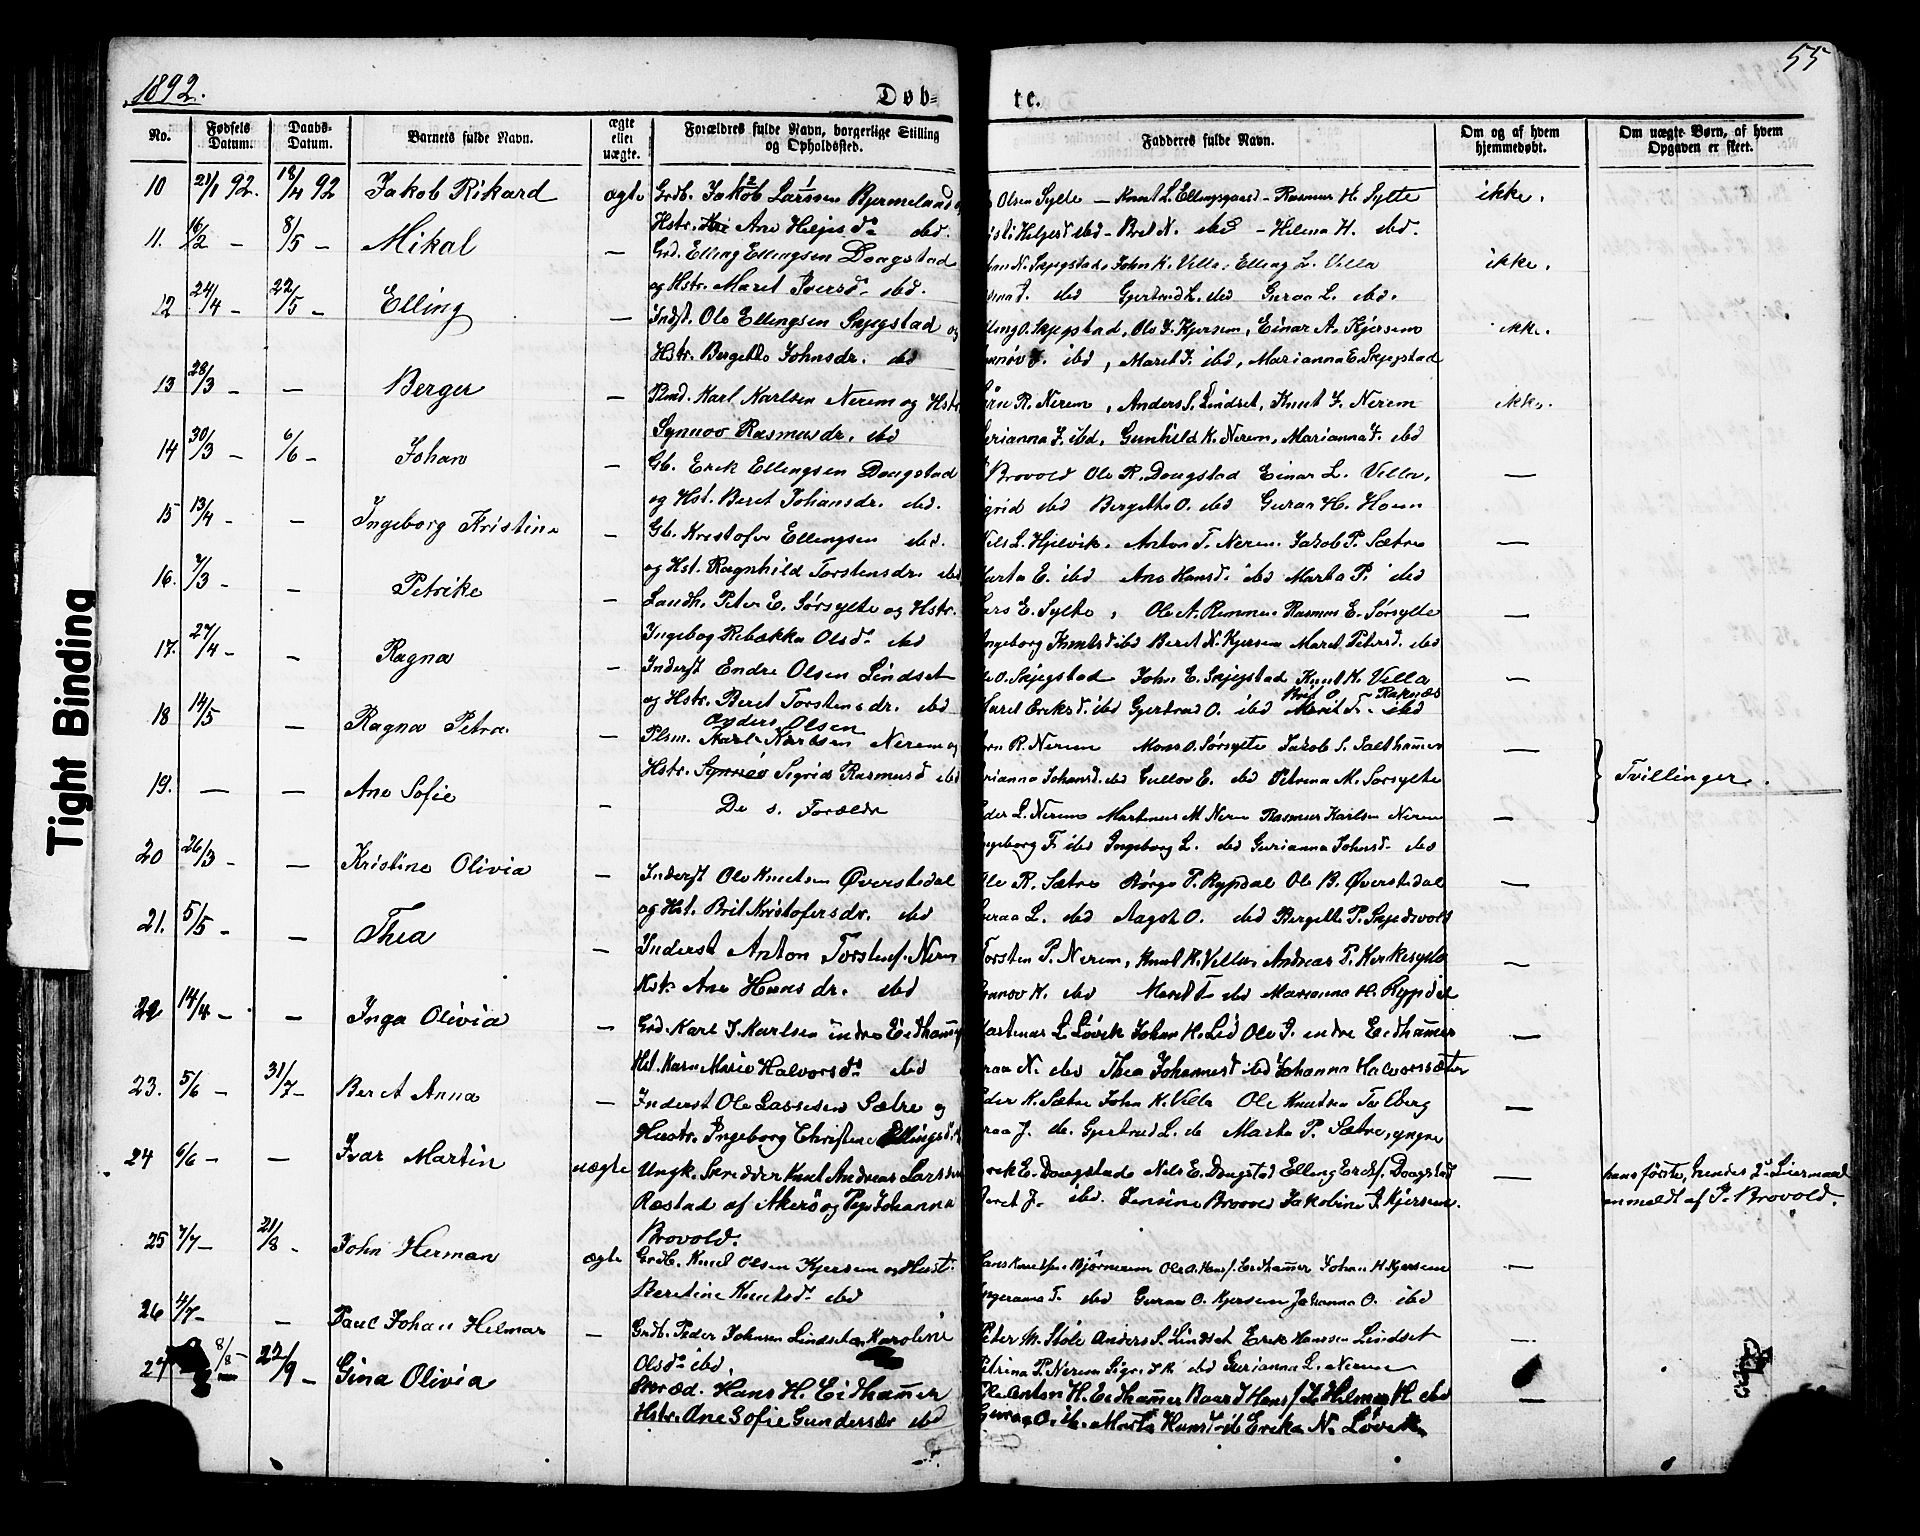 1892.
55
Døb-
te.
No.
Fødsels Datum.
Daabs-Datum.
Barnets fulde Navn.
ægte eller uægte.
Forældres fulde Navn, borgerlige Stilling og Opholdssted.
Fadderes fulde Navn.
Om og af hvem hjemmedøbt.
Om uægte Børn, af hvem Opgaven er skeet.
10 21/1 92. 18/4 92 Jakob Rikard ægte Grdb. Jakob Larssen Bjermeland Olsen Sylte – Knut L. Ellingsgaard – Rasmus H. Sylte ikke.
Hstr. Ane Heljesd. ibd. Heljesd ibd – Bret N. ibd – Helena H. ibd.
11. 16/2 – 8/5 – Mikal – Grd. Elling Ellingsen Dougstad N. Skjegstad, John K. Villa, Elling L. Villa ikke.
og Hstr. Maret Iversd. ibd. ibd Gjertrud L. ibd Guraa L. ibd.
12 24/4 – 22/5 – Elling – Indst. Ole Ellingsen Skjegstad og O. Skjegstad, Ole J. Kjersem, Einar A. Kjersem ikke.
Hstr. Bergitte Johnsdr. ibd J. ibd, Maret J. ibd, Marianna E. Skjegstad
13 28/3 – – Berger – Plmd. Karl Karlsen Nerem og Hstr R. Nerem, Anders S. Lindset, Knut J. Nerem ikke.
Synnøv Rasmusdr. ibd J. ibd, Gunhild K. Nerem, Marianna J. ibd
14 30/3 – 6/6 – Johan – Gb. Erik Ellingsen Dougstad Brovold Ole R. Dougstad Einar L. Villa, —
og Hst. Beret Johansdr. ibd. ibd Bergitte O. ibd Guraa H. Hoem
15 13/4 – – Ingeborg Kristine – Gb. Kristofer Ellingsen ibd. L. Hjelvik, Anton T. Nerem Jakob P. Sætre —
og Hst. Ragnhild Torstensdr. ibd E. ibd Ane Hansd. ibd Marta P. ibd
16. 7/3 – – Petrike – Landh. Peter E. Sørsylte og Hstr. E. Sylte, Ole A. Remmem Rasmus E. Sørsylte —
Ingebog Rebækka Olsd. ibd Ingeborg Knutsd ibd Beret N. Kjersem Maret Petersd. ibd
17. 27/4 – – Ragna – Inderst Endre Olsen Lindset O. Skjegstad John E. Skjegstad Knut K. Villa —
og Hstr. Beret Torstensdr. ibd Maret Eriksd. ibd Gjertrud O. ibd Brit O. Raknes
18 14/5 – Ragna Petra – Plsm. Anders Olsen Nerem og R. Nerem Mons O. Sørsylte Jakob S. Salthammer —
Hstr. Synnøv Sigrid Rasmusd ibd Johansd. ibd Gullov E. ibd Petrina M. Sørsylte
19. — — Ane Sofie – De s. Forældr Peder L. Nerem Martinus M. Nerem Rasmus Karlsen Nerem — Tvillinger.
Ingeborg F. ibd Ingeborg L. ibd Gurianna Johnsd. ibd
20 26/3 – – Kristine Olivia – Inderst Ole Knutsen Øverstedal Ole R. Sætre Børge P. Rypdal Ole B. Øverstedal —
og Hst. Brit Kristofersdr. ibd Guraa L. ibd Aagot O. ibd Bergitte P. Skjedsvold
21. 5/5 – – Thea – Inderst Anton Torstens. Nerem Torsten P. Nerem, Knut K. Villa, Andreas T. Kirkesylte —
Hstr. Ane Hansdr. ibd Synnøv K. ibd Maret T. ibd Marianna H. Rypdal
22 14/4 – – Inga Olivia – Grd. Karl J. Karlsen indre Eidhammer Martinus L. Løvik Johan H. Lid Ole J. indre Eidhammer —
Hst. Karn Marie Halvorsd. ibd Guraa N. ibd Thea Johannesd ibd Johanna Halvorssæter
23. 5/6 – 31/7 – Beret Anna – Inderst Ole Lassesen Sætre og Peder K. Sætre John K. Villa Ole Knutsen —
Hustr. Ingeborg Christine Ellingsd. J. de. Gjertrud L. de Marta P. Sætre, yngre
24 6/6 – – Ivar Martin uægte Ungk. Skredder Knut Andreas Larssen Erik E. Dougstad Nils E. Dougstad Elling Eriks. Dougstad — hans første, hendes 2. Leiermaal
Ræstad af Akerø og Pige Johanna Beret J. ibd. Jensine Brovold Jakobine J. Kjersem. anmeldt af P. Brovold.
Brovold.
25 7/7 – 21/8 – John Herman ægte Grdb. Knut Olsen Kjersem og Hust. Hans Knutsen Bjørnerem Ole O. Hans. Eidhammer Johan H. Kjersem —
Beretine Knutsd. ibd Ingeranna T. ibd Guraa O. Kjersem Johanna O. ibd
26 4/7 – – Paul Johan Helmar – Grdb. Peder Johnsen Lindset og Karoline Peter M. Støle Anders S. Lindset Erik Hansen Lindset —
Olsd. ibd. Petrina P. Nerem ibd Gurianna L. Nerem
27 8/8 – 22/9 – Gina Olivia Skræd. Hans H. Eidhammer Ole Anton H. Eidhammer Baard Hans. Hilmar H. ibd —
Hstr. Ane Sofie Gundersdr ibd Guraa O. ib. Marta Hansd ib Erika N. Løvik
Tight Binding